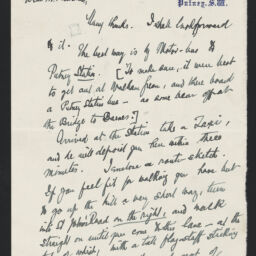 Putney. S.W.
Many thanks. I shall look forward
to it. The best way is by Motor-bus to
Putney Station. [To make sure, it were best
to get out at and then board
a Putney Station bus — as some bear off at
the Bridge to Barnes:]
Arrived at the Station take a Taxi,
and he will deposit you here within three
minutes. I enclose a route sketch.
If you feel fit for walking you have but
to go up the hill a very short way, turn
into St John's Road on the right, and walk
straight on until you come to the — at the
of which, with a tall flag-staff sticking